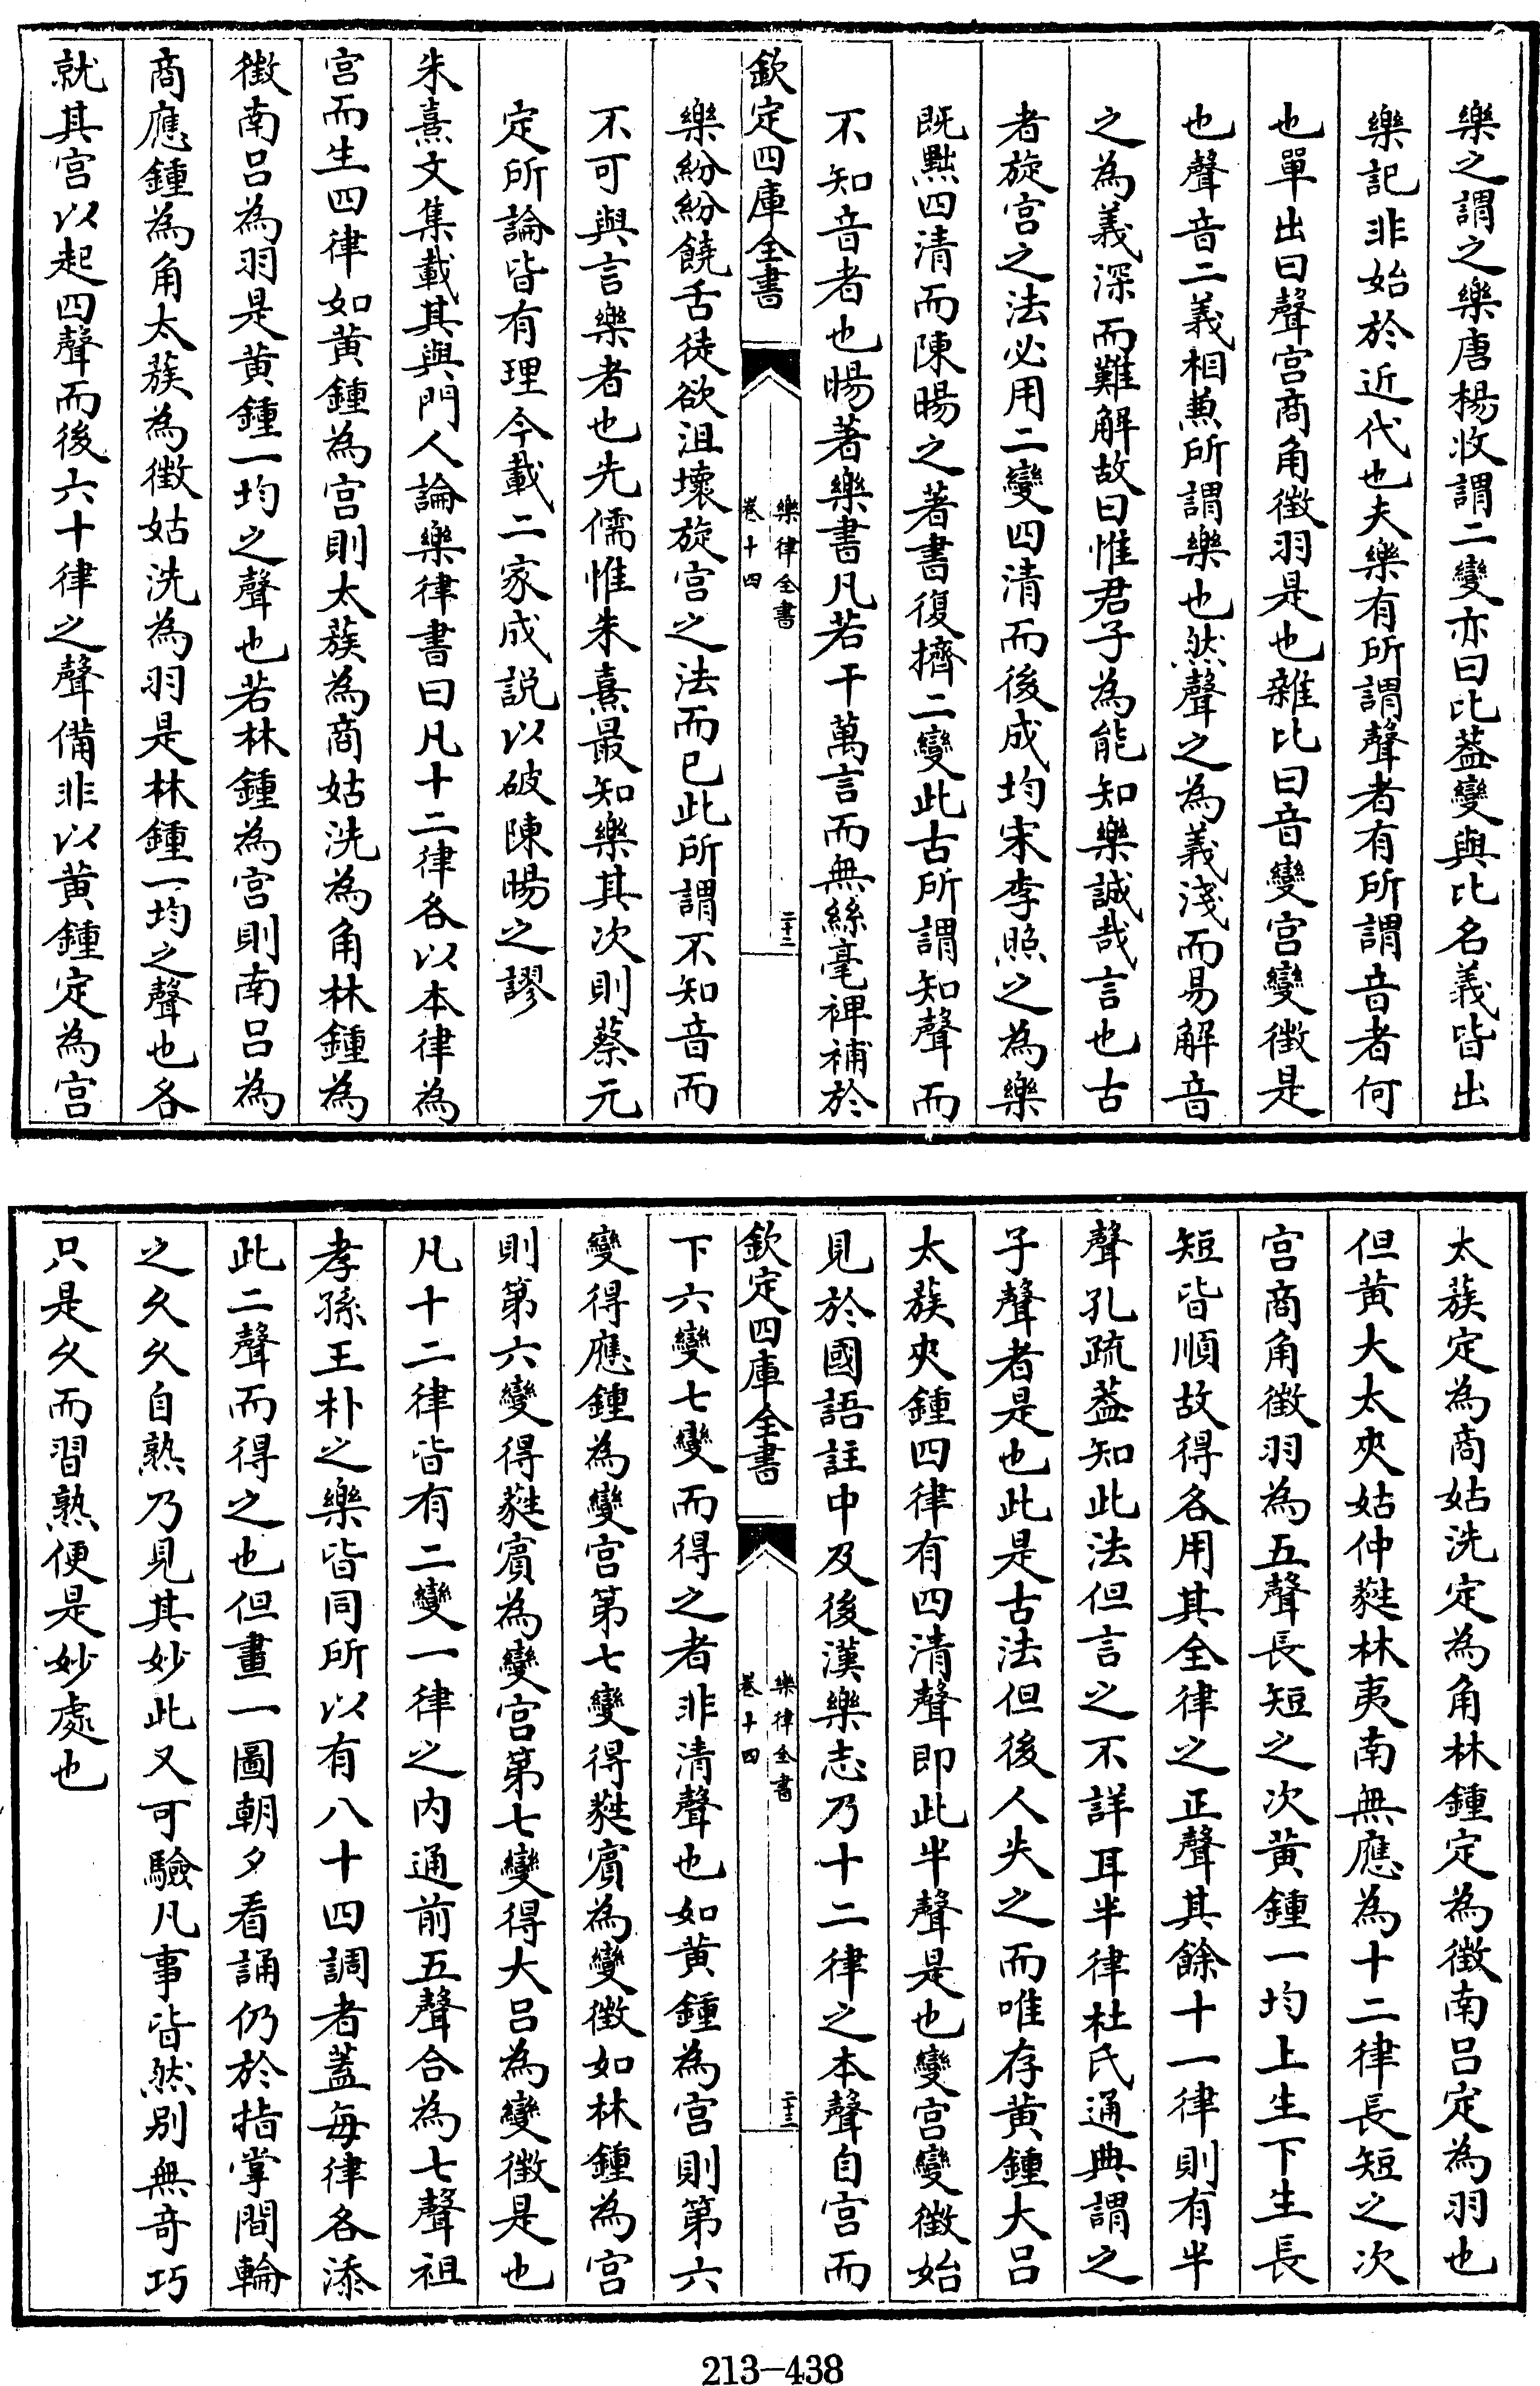 樂之謂之樂唐楊收謂二變亦曰比葢變與比名義皆出
樂記非始於近代也夫樂有所謂聲者有所謂音者何
也單出曰聲宫商角徵羽是也雜比曰音變宫變徵是
也聲音二義相兼所謂樂也然聲之為義淺而易解音
之為義深而難解故曰惟君子為能知樂誠哉言也古
者旋宫之法必用二變四清而後成均宋李照之為樂
既黜四清而陳暘之著書復擠二變此古所謂知聲而
不知音者也暘著樂書凡若干萬言而無絲毫裨補於
欽定四庫全書
樂律全書
卷十四
二十二
樂紛紛饒舌徒欲沮壞旋宫之法而已此所謂不知音而
不可與言樂者也先儒惟朱熹最知樂其次則蔡元
定所論皆有理今載二家成説以破陳暘之謬
朱熹文集載其與門人論樂律書曰凡十二律各以本律為
宫而生四律如黄鍾為宫則太蔟為商姑洗為角林鍾為
徵南呂為羽是黄鍾一均之聲也若林鍾為宫則南呂為
商應鍾為角太蔟為徵姑洗為羽是林鍾一均之聲也各
就其宫以起四聲而後六十律之聲備非以黄鍾定為宫
太蔟定為商姑洗定為角林鍾定為徵南呂定為羽也
但黄大太夾姑仲蕤林夷南無應為十二律長短之次
宫商角徵羽為五聲長短之次黄鍾一均上生下生長
短皆順故得各用其全律之正聲其餘十一律則有半
聲孔疏葢知此法但言之不詳耳半律杜氏通典謂之
子聲者是也此是古法但後人失之而唯存黄鍾大呂
太蔟夾鍾四律有四清聲即此半聲是也變宫變徵始
見於國語註中及後漢樂志乃十二律之本聲自宫而
欽定四庫全書
樂律全書
卷十四
二十三
下六變七變而得之者非清聲也如黄鍾為宫則第六
變得應鍾為變宫第七變得蕤賓為變徵如林鍾為宫
則第六變得蕤賓為變宫第七變得大呂為變徵是也
凡十二律皆有二變一律之内通前五聲合為七聲祖
孝孫王朴之樂皆同所以有八十四調者葢每律各添
此二聲而得之也但畫一圖朝夕看誦仍於指掌間輪
之久久自熟乃見其妙此又可驗凡事皆然别無奇巧
只是久而習熟便是妙處也
213-438